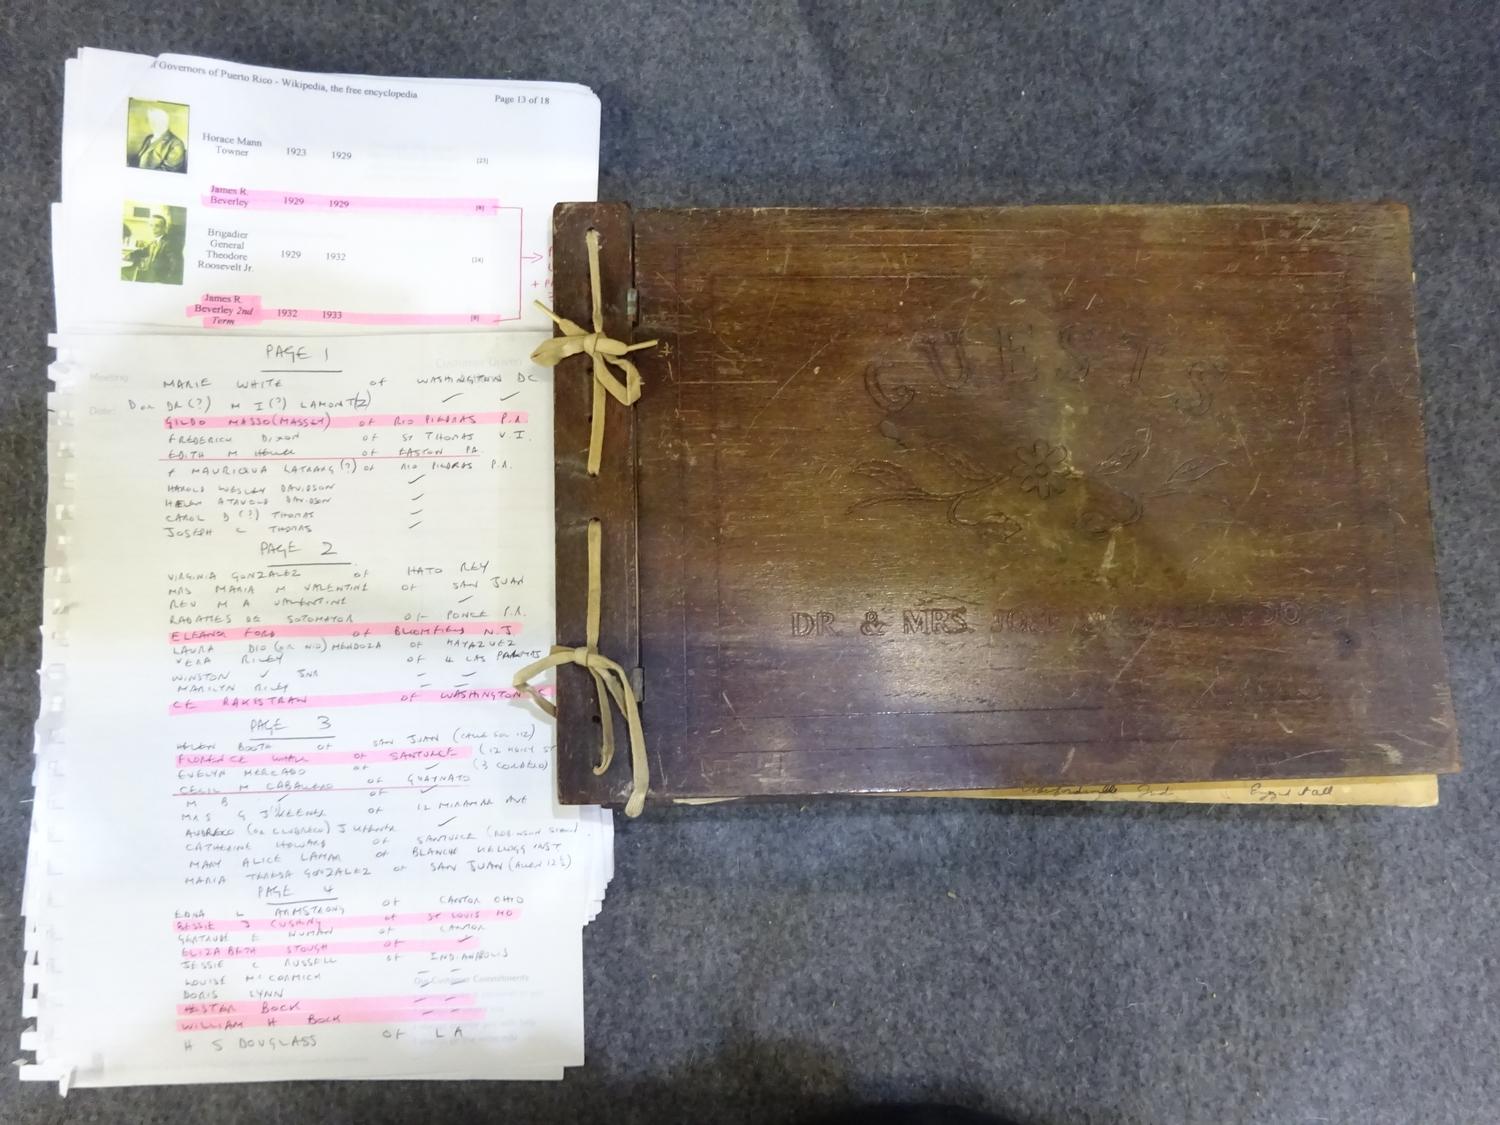 f Governors of Puerto Rico - Wikipedia, the free encyclopedia
Page 13 of 18
Horace Mann Towner 1923 1929 [23]
James R. Beverley 1929 1929 [8]
Brigadier General Theodore Roosevelt Jr. 1929 1932 [24]
James R. Beverley 2nd Term 1932 1933 [8]
PAGE 1
MARIE WHITE of WASHINGTON DC
DR (?) M I (?) LAMONT(Z) ✓ ✓
GILDO MASSO (MASSEY) of RIO PIEDRAS P.R.
FREDERICK DIXON of ST THOMAS V.I.
EDITH M of EASTON PA.
+ MAURICQUA LATRANG (?) of RIO PIEDRAS P.R.
HAROLD WESLEY DAVIDSON ✓
HELEN ATWOLD DAVIDSON ✓
CAROL D (?) THOMAS ✓
JOSEPH C THOMAS ✓
PAGE 2
VIRGINIA GONZALEZ of HATO REY
MRS MARIA M VALENTINE of SAN JUAN
REV M A VALENTINE ✓
RADAMES DE SOTOMAYOR of PONCE P.R.
ELEANOR FORD of BLOOMFIELD N.J
LAURA DIO (OR NIO) MENDOZA of MAYAZUEZ
VERA RILEY of 4 LAS PALMAS
WINSTON ✓ SNR
MARILYN RILEY
CE RAKESTRAW of WASHINGTON
PAGE 3
HELEN BOOTH of SAN JUAN (CALLE SOL 112)
FLORENCE of SANTURCE (12
EVELYN MERCADO of ✓ (3
CECIL M CABALLERO of GUAYNATO
M B ✓ of ✓
MRS G J KEENER of 12 MIRAMAR AVE
AUDREKO (OR CLUDREKO) J KEENER ✓
CATHERINE HOWARD of SANTURCE (ROBINSON
MARY ALICE LAMAR of BLANCHE KELLOGG INST
MARIA TERESA GONZALEZ of SAN JUAN (ALLEN 12
PAGE 4
EDNA L ARMSTRONG of CANTON OHIO
BESSIE J CUSHING of ST LOUIS MO
GERTRUDE E NUMAN of CANTON
ELIZABETH STOUGH of ✓
JESSIE C RUSSELL of INDIANAPOLIS
LOUISE McCORMICK
DORIS LYNN
HESTER BOCK
WILLIAM H BOCK
H S DOUGLASS of LA
Our Customer Commitments
GUESTS
DR. & MRS.